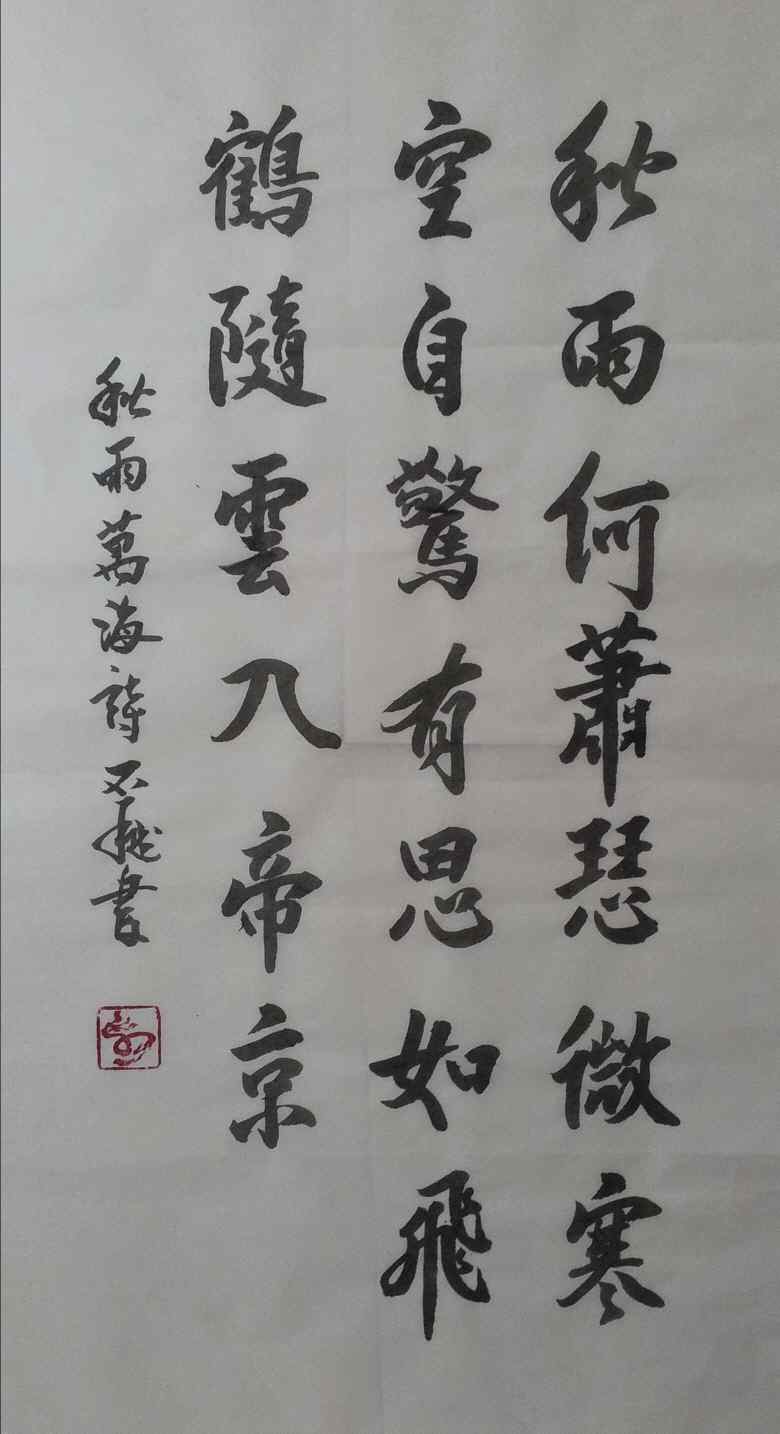 秋雨何蕭瑟微寒
空自驚有思如飛
鶴隨雲入帝京
秋雨萬海詩不
書